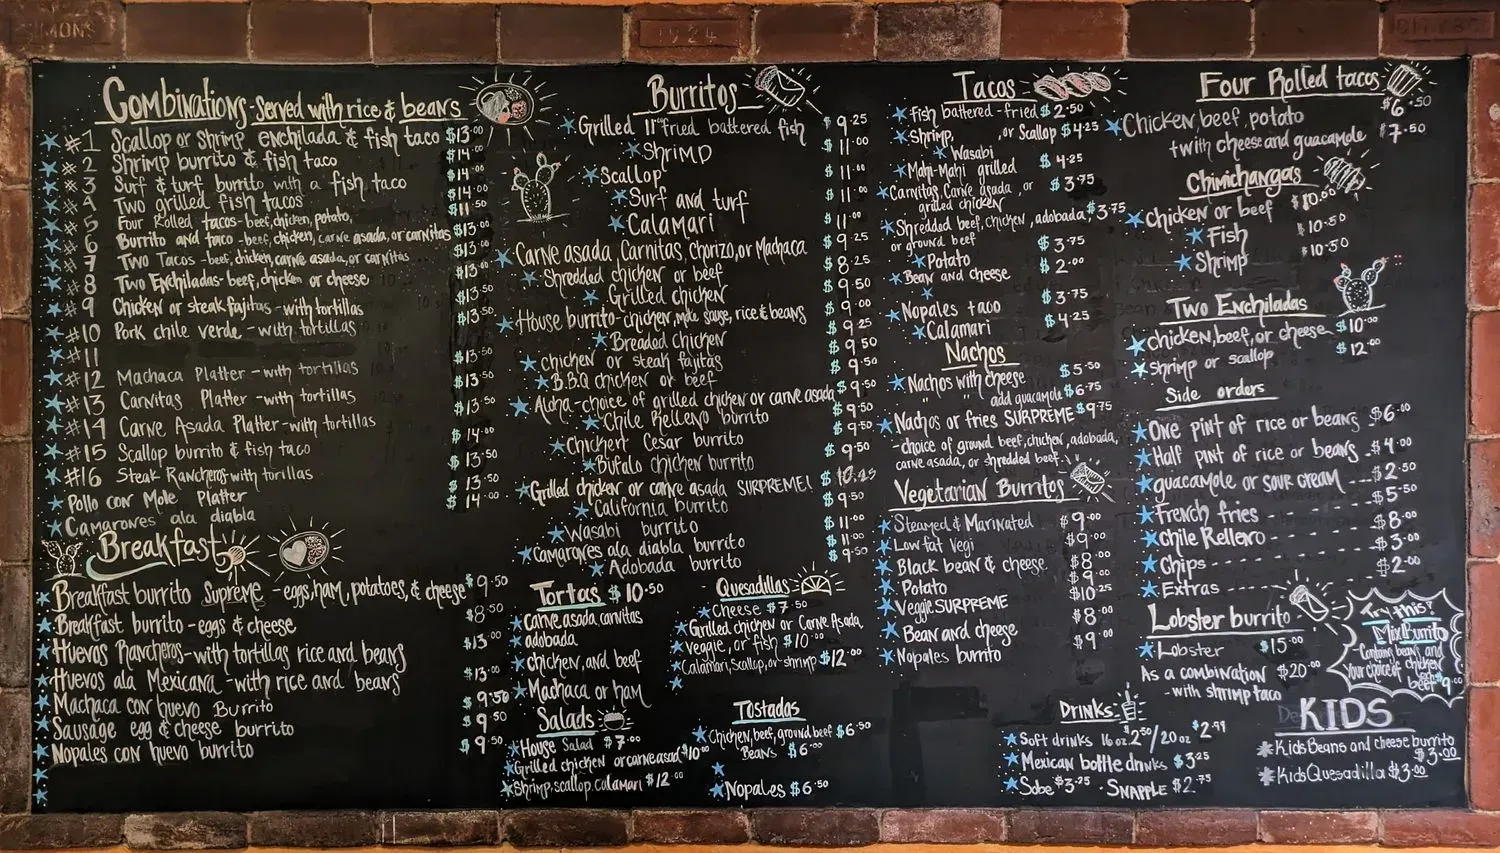 SIMONS
1924
Combinations - Served with rice & beans
#1 Scallop or Shrimp enchilada & fish taco $13.00
#2 Shrimp burrito & fish taco $14.00
#3 Surf & turf burrito with a fish taco $14.00
#4 Two grilled fish tacos $14.00
#5 Four Rolled tacos - beef, chicken, potato, $11.50
#6 Burrito and taco - beef, chicken, carne asada, or carnitas $13.00
#7 Two Tacos - beef, chicken, carne asada, or carnitas $13.00
#8 Two Enchiladas - beef, chicken or cheese $13.00
#9 Chicken or steak fajitas - with tortillas $13.50
#10 Pork chile verde - with tortillas $13.50
#11
#12 Machaca Platter - with tortillas $13.50
#13 Carnitas Platter - with tortillas $13.50
#14 Carne Asada Platter - with tortillas $13.50
#15 Scallop burrito & fish taco $14.00
#16 Steak Rancheros - with torillas $13.50
Pollo con Mole Platter $13.50
Camarones ala diabla $14.00
Breakfast
Breakfast burrito Supreme - eggs, ham, potatoes, & cheese $9.50
Breakfast burrito - eggs & cheese $8.50
Huevos Rancheros - with tortillas rice and beans $13.00
Huevos ala Mexicana - with rice and beans $13.00
Machaca con huevo Burrito $9.50
Sausage egg & cheese burrito $9.50
Nopales con huevo burrito $9.50
Burritos
Grilled 11" fried battered fish $9.25
Shrimp $11.00
Scallop $11.00
Surf and turf $11.00
Calamari $11.00
Carne asada, Carnitas, Chorizo, or Machaca $9.25
Shredded chicken or beef $8.25
Grilled chicken $9.50
House burrito - chicken, mole sauce, rice & beans $9.00
Breaded chicken $9.25
chicken or steak fajitas $9.50
B.B.Q chicken or beef $9.50
Aloha - choice of grilled chicken or carne asada $9.50
Chile Relleno burrito $9.50
Chicken Cesar burrito $9.50
Bufalo chicken burrito $9.50
Grilled chicken or carne asada SURPREME! $10.25
California burrito $9.50
Wasabi burrito $11.00
Camarones ala diabla burrito $11.00
Adobada burrito $9.50
Tortas $10.50
carne asada carnitas
adobada
chicken, and beef
Machaca or ham
Salads
House Salad $7.00
Grilled chicken or carne asada $10.00
Shrimp, scallop, Calamari $12.00
Quesadillas
Cheese $7.50
Grilled chicken or Carne Asada
veggie, or fish $10.00
Calamari, Scallop, or shrimp $12.00
Tostadas
Chicken, beef, ground beef $6.50
Beans $6.00
Nopales $6.50
Tacos
Fish battered - fried $2.50
Shrimp, or Scallop $4.25
Wasabi
Mahi-Mahi grilled $4.25
Carnitas, Carne asada, or
grilled chicken $3.75
Shredded beef, chicken, adobada, $3.75
or ground beef
Potato $3.75
Bean and cheese $2.00
Nopales taco $3.75
Calamari $4.25
Nachos
Nachos with cheese $5.50
" " add guacamole $6.75
Nachos or fries SURPREME $9.75
-choice of ground beef, chicken, adobada,
carne asada, or shredded beef
Vegetarian Burritos
Steamed & Marinated $9.00
Low fat Vegi $9.00
Black bean & cheese $8.00
Potato $9.00
Veggie SURPREME $10.25
Bean and cheese $8.00
Nopales burrito $9.00
Drinks
Soft drinks 16 oz. 2.50 / 20 oz $2.99
Mexican bottle drinks $3.25
Sobe $3.25 - SNAPPLE $2.75
Four Rolled tacos
Chicken, beef, potato $6.50
+with cheese and guacamole $7.50
Chimichangas
Chicken or beef $10.00
Fish $10.50
Shrimp $10.50
Two Enchiladas
chicken, beef, or cheese $10.00
shrimp or scallop $12.00
Side orders
One pint of rice or beans $6.00
Half pint of rice or beans $4.00
guacamole or sour cream $2.50
French fries $5.50
Chile Relleno $8.00
Chips $3.00
Extras $2.00
Lobster burrito
Lobster $15.00
As a combination $20.00
-with shrimp taco
Try this!
Mix Burrito
-Contains beans and
your choice of chicken
beef $9.00
KIDS
Kids Beans and cheese burrito
$3.00
Kids Quesadilla $3.00